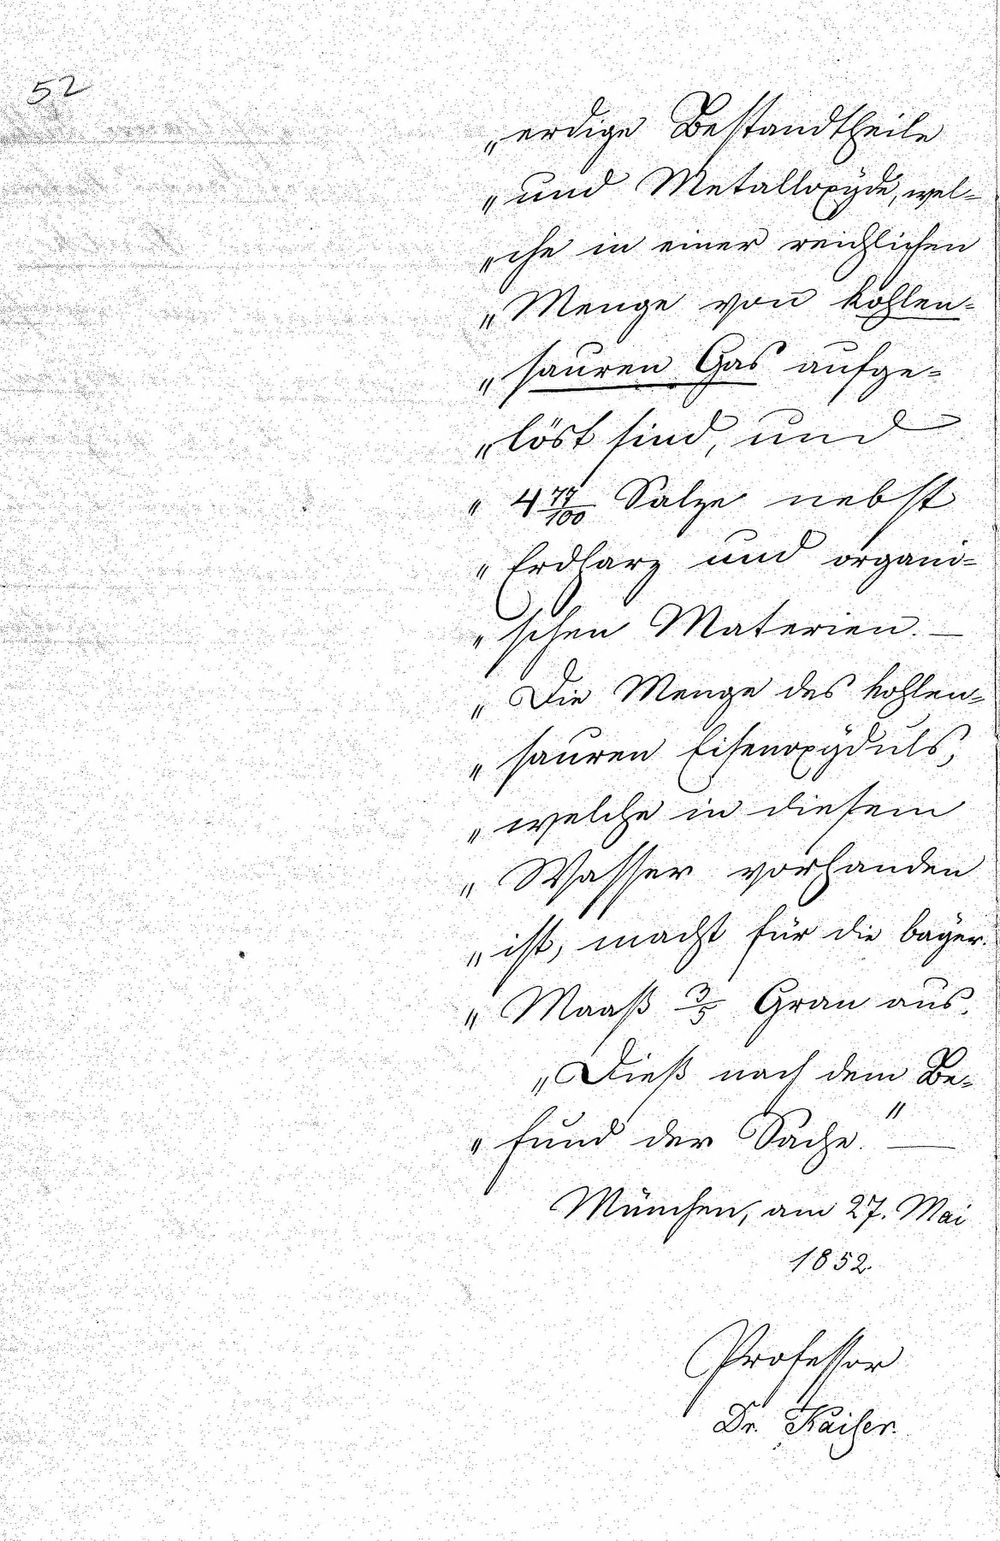 52
„ erdige Bestandtheile
„ und Metalloxÿde, wel=
„ che in einer reichlichen
„ Menge von kohlen=
„ sauren Gas aufge=
„ löst sind, und
„ 4 77/100 Salze nebst
„ Erdharz und organi=
„ schen Materien. —
„ Die Menge des kohlen=
„ sauren Eisenoxÿduls,
„ welche in diesem
„ Wasser vorhanden
„ ist, macht für die baÿer.
„ Maaß 3/5 Gran aus.
„ Dieß nach dem Be=
„ fund der Sache." —
München, am 27. Mai
1852.
Professor
Dr. Kaiser.